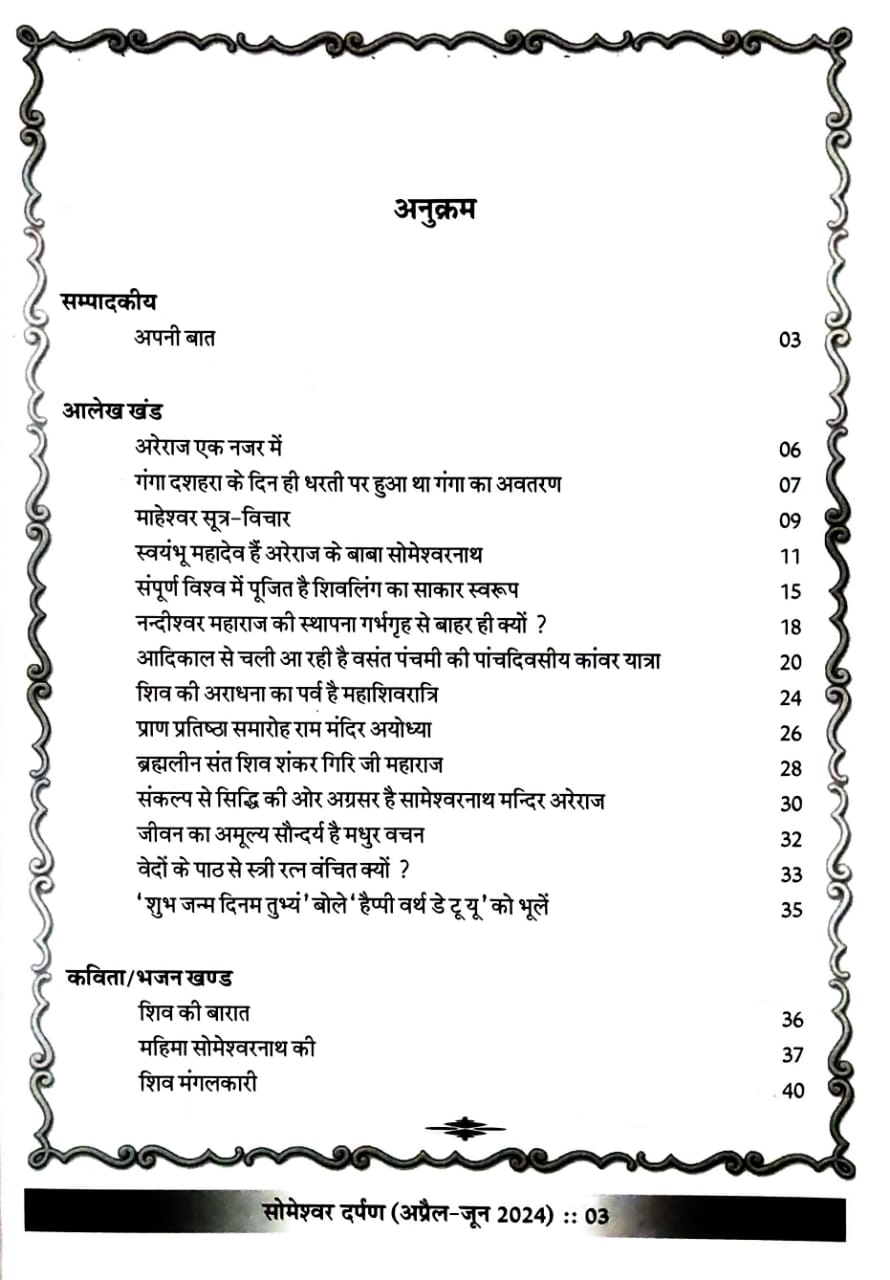 अनुक्रम
सम्पादकीय
अपनी बात 03
आलेख खंड
अरेराज एक नजर में 06
गंगा दशहरा के दिन ही धरती पर हुआ था गंगा का अवतरण 07
माहेश्वर सूत्र-विचार 09
स्वयंभू महादेव हैं अरेराज के बाबा सोमेश्वरनाथ 11
संपूर्ण विश्व में पूजित है शिवलिंग का साकार स्वरूप 15
नन्दीश्वर महाराज की स्थापना गर्भगृह से बाहर ही क्यों ? 18
आदिकाल से चली आ रही है वसंत पंचमी की पांचदिवसीय कांवर यात्रा 20
शिव की अराधना का पर्व है महाशिवरात्रि 24
प्राण प्रतिष्ठा समारोह राम मंदिर अयोध्या 26
ब्रह्मलीन संत शिव शंकर गिरि जी महाराज 28
संकल्प से सिद्धि की ओर अग्रसर है सामेश्वरनाथ मन्दिर अरेराज 30
जीवन का अमूल्य सौन्दर्य है मधुर वचन 32
वेदों के पाठ से स्त्री रत्न वंचित क्यों ? 33
'शुभ जन्म दिनम तुभ्यं' बोले 'हैप्पी वर्थ डे टू यू' को भूलें 35
कविता/भजन खण्ड
शिव की बारात 36
महिमा सोमेश्वरनाथ की 37
शिव मंगलकारी 40
सोमेश्वर दर्पण (अप्रैल-जून 2024) :: 03